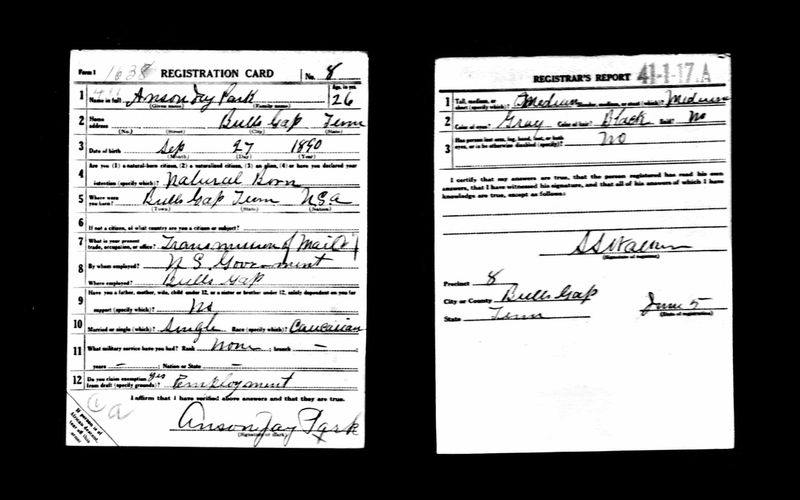 Form 1 1638 REGISTRATION CARD No. 8
1 Name in full Anson Jay Park Age, in yrs. 26
(Given name) (Family name)
2 Home address Bulls Gap Tenn
(No.) (Street) (City) (State)
3 Date of birth Sep 27 1890
(Month) (Day) (Year)
4 Are you (1) a natural-born citizen, (2) a naturalized citizen, (3) an alien, (4) or have you declared your
intention (specify which)? Natural Born
5 Where were you born? Bulls Gap Tenn USA
(Town) (State) (Nation)
6 If not a citizen, of what country are you a citizen or subject?
7 What is your present trade, occupation, or office? Transmission of Mail
8 By whom employed? U S Government
Where employed? Bulls Gap
9 Have you a father, mother, wife, child under 12, or a sister or brother under 12, solely dependent on you for
support (specify which)? No
10 Married or single (which)? Single Race (specify which)? Caucasian
11 What military service have you had? Rank None ; branch —
years — ; Nation or State —
12 Do you claim exemption from draft (specify grounds)? yes Employment
I affirm that I have verified above answers and that they are true.
Anson Jay Park
(Signature or mark)
If person is of African descent, tear off this corner
REGISTRAR'S REPORT 41-1-17.A
1 Tall, medium, or short (specify which)? Medium Slender, medium, or stout (which)? Medium
2 Color of eyes? Gray Color of hair? Black Bald? No
3 Has person lost arm, leg, hand, foot, or both eyes, or is he otherwise disabled (specify)? No
I certify that my answers are true, that the person registered has read his own
answers, that I have witnessed his signature, and that all of his answers of which I have
knowledge are true, except as follows:
(Signature of registrar)
Precinct 8
City or County Bulls Gap
State Tenn
June 5
(Date of registration)